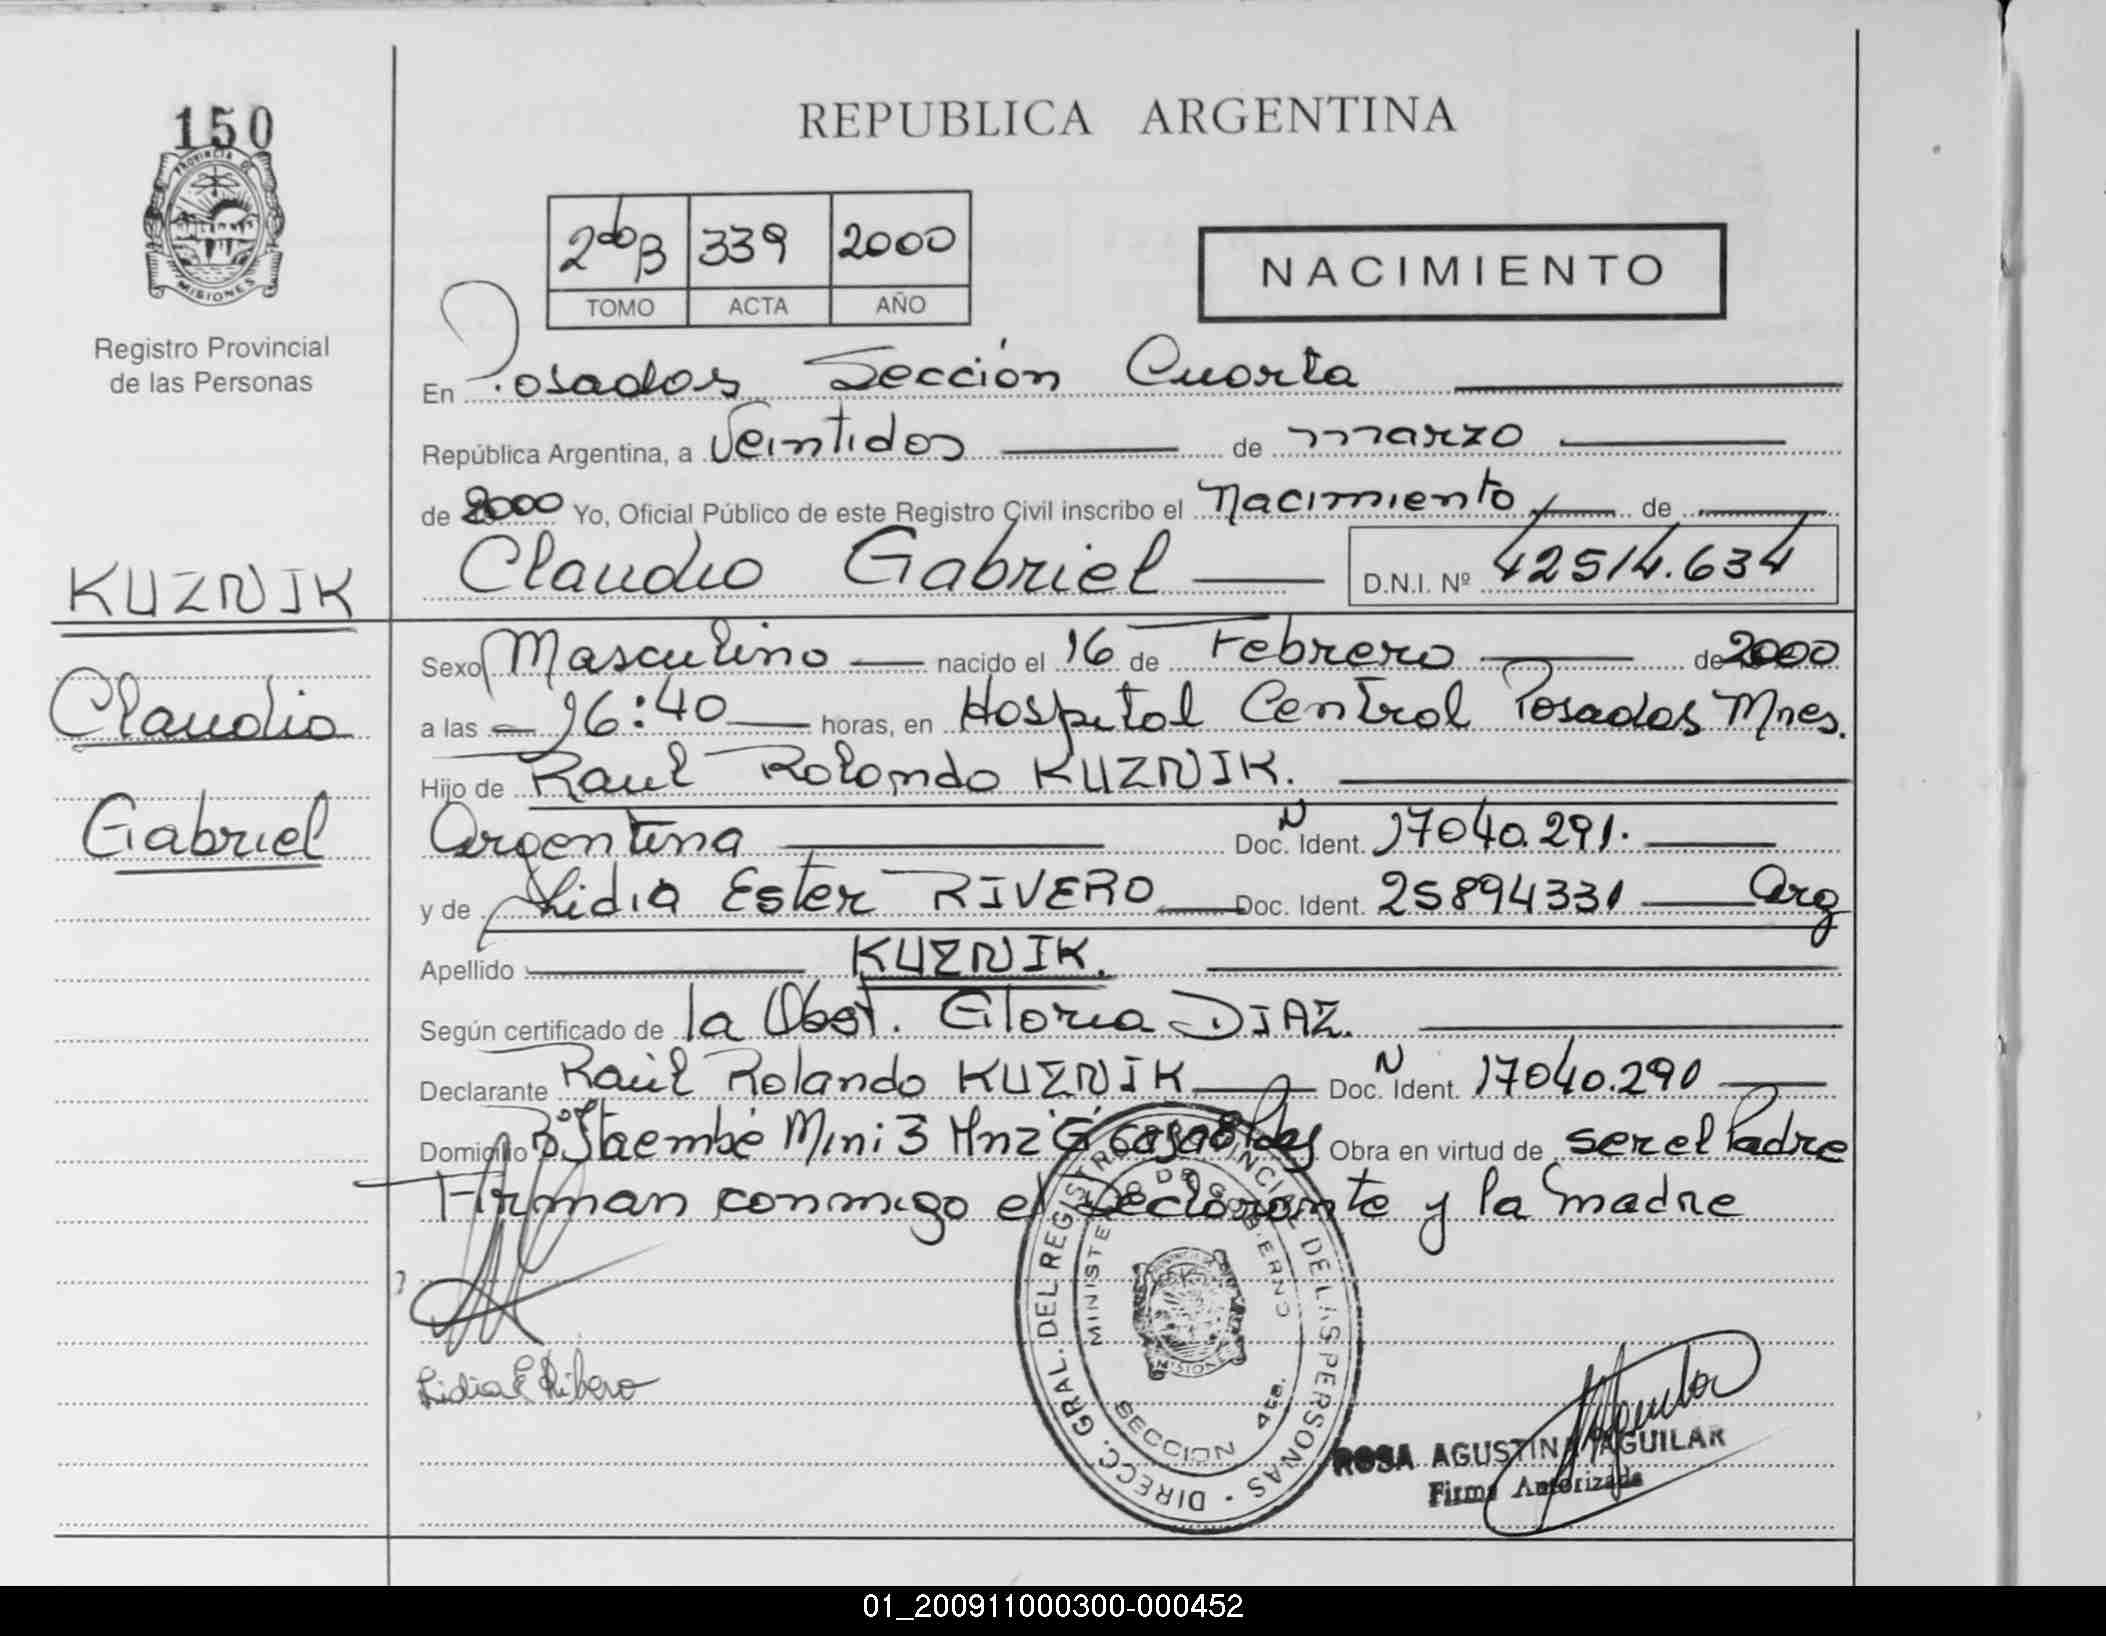 150
PROVINCIA DE
MISIONES
Registro Provincial
de las Personas
REPUBLICA ARGENTINA
2do B 339 2000
TOMO ACTA AÑO
NACIMIENTO
En Posadas Sección Cuarta
República Argentina, a Veintidos de marzo
de 2000 Yo, Oficial Público de este Registro Civil inscribo el Nacimiento de
Claudio Gabriel D.N.I. Nº 42514.634
KUZNIK
Claudio
Gabriel
Sexo Masculino nacido el 16 de Febrero de 2000
a las 16:40 horas, en Hospital Central Posadas Mnes.
Hijo de Raul Rolando KUZNIK.
Argentina Doc. N Ident. 17040.291.
y de Lidia Ester RIVERO Doc. Ident. 25894331 Arg
Apellido KUZNIK.
Según certificado de la Obst. Gloria DIAZ.
Declarante Raúl Rolando KUZNIK Doc. N Ident. 17040.290
Domicilio Bº Itaembé Mini 3 Mnz G casa 8 Pdas Obra en virtud de ser el Padre
Firman conmigo el Declarante y la madre
DIRECC. GRAL. DEL REGISTRO PROVINCIAL DE LAS PERSONAS
MINISTERIO DE GOBIERNO
MISIONES
SECCION 4ta.
Lidia E Ribero
ROSA AGUSTINA AGUILAR
Firma Autorizada
01_200911000300-000452